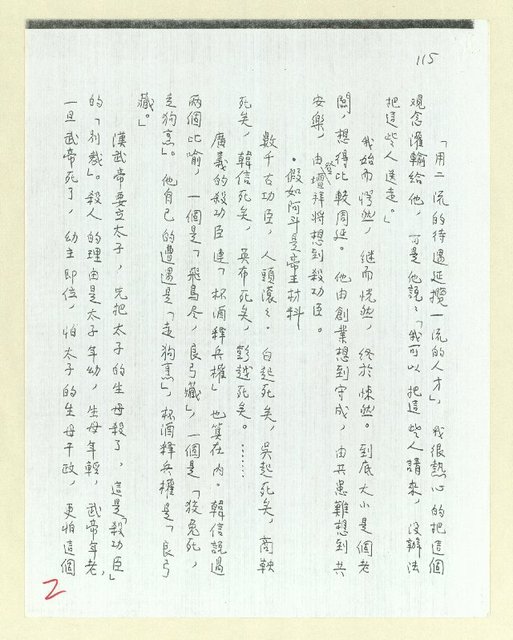 115
「用二流的待遇延攬一流的人才」，我很熱心的把這個
觀念灌輸給他，可是他說：「我可以把這些人請來，沒辦法
把這些人送走。」
我始而愕然，繼而恍然，終於悚然。到底大小是個老
闆，想得比較周延。他由創業想到守成，由共患難想到共
安樂，由登壇拜將想到殺功臣。
•假如阿斗是帝王材料
數千古功臣，人頭滾滾。白起死矣，吳起死矣，商鞅
死矣，韓信死矣，英布死矣，彭越死矣。……
廣義的殺功臣連「杯酒釋兵權」也算在內。韓信說過
兩個比喻，一個是「飛鳥盡，良弓藏」，一個是「狡兔死，
走狗烹」。他自己的遭遇是「走狗烹」，杯酒釋兵權是「良弓
藏。」
漢武帝要立太子，先把太子的生母殺了，這是「殺功臣」
的「別裁」。殺人的理由是太子年幼，生母年輕，武帝年老，
一旦武帝死了，幼主即位，怕太子的生母干政，更怕這個
2